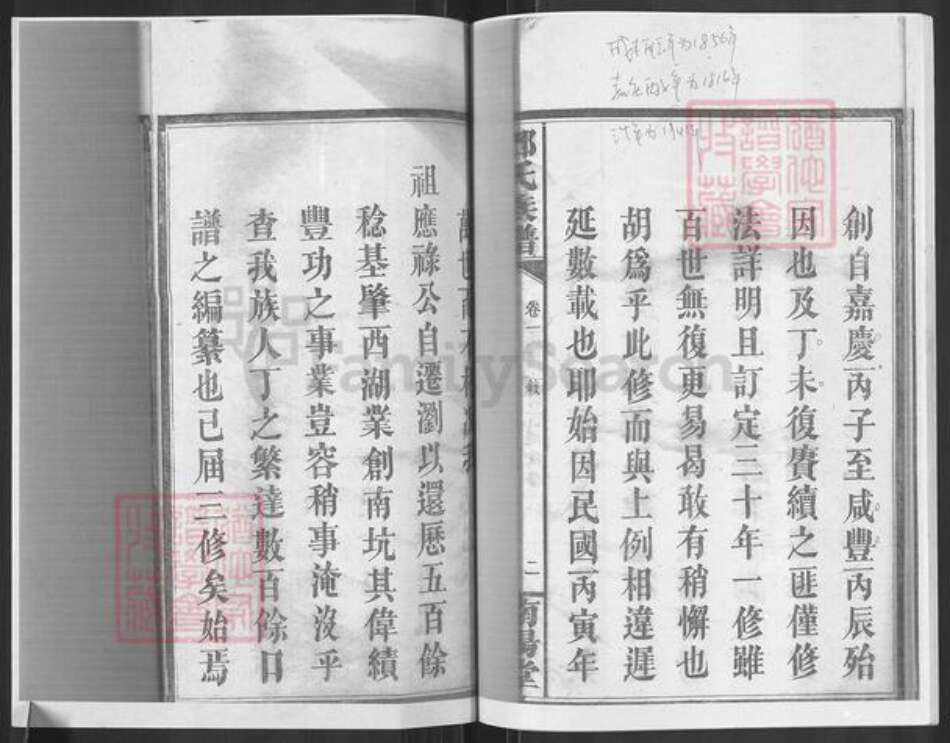 創自嘉慶丙子至咸豐丙辰殆
因也及丁未復賡續之匪僅修
法詳明且訂定三十年一修雖
百世無復更易曷敢有稍懈也
胡爲乎此修而與上例相違遲
延數載也耶始因民國丙寅年
氏族譜
卷一
二
南陽堂
祖應祿公自遷瀏以還歷五百餘
稔基肇西湖業創南坑其偉績
豐功之事業豈容稍事淹沒乎
查我族人丁之繁達數百餘口
譜之編纂也已届三修矣始焉
FamilySearch